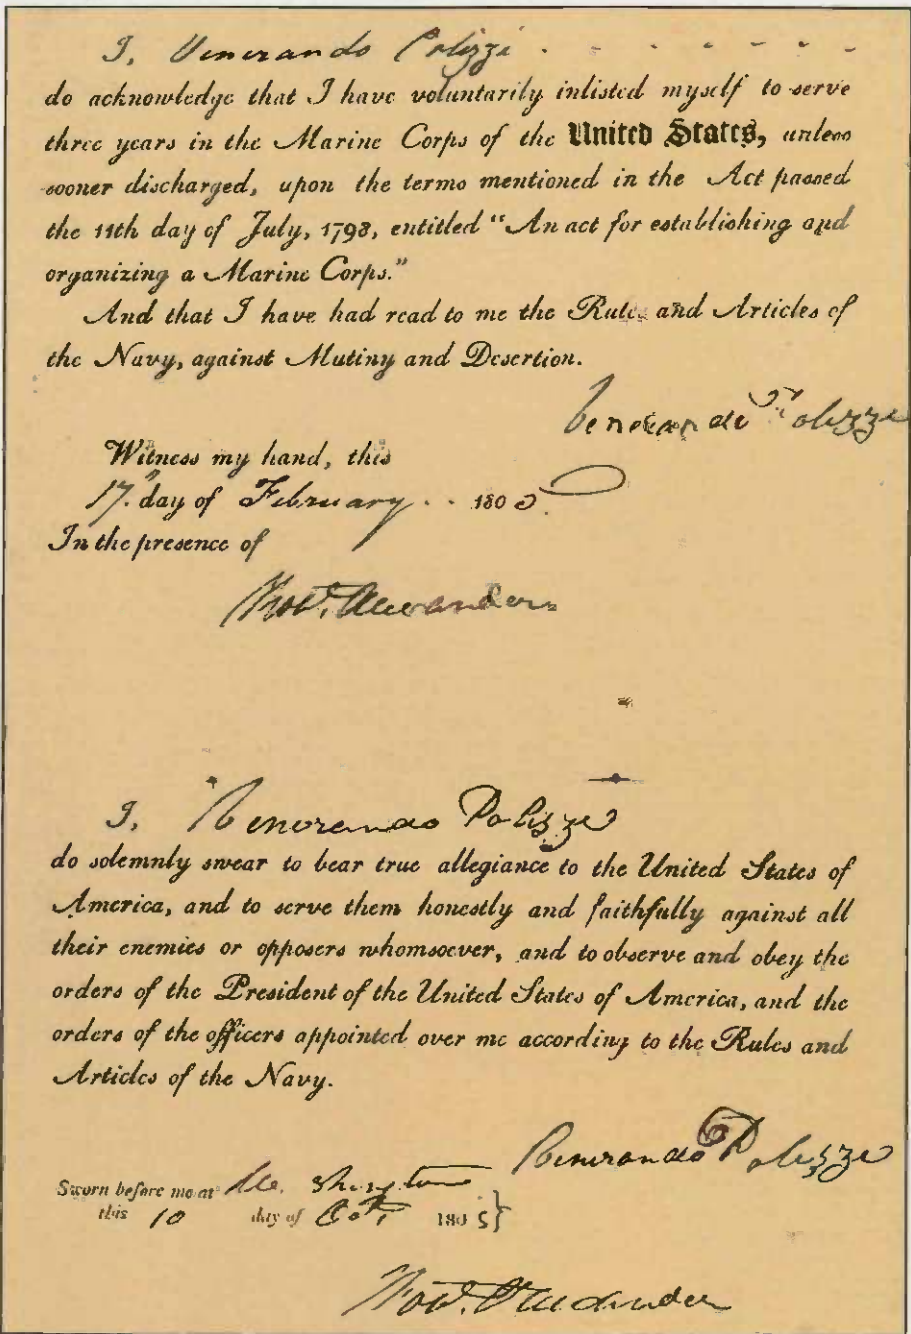 I, Venerando Polizzi - - - - - -
do acknowledge that I have voluntarily inlisted myself to serve
three years in the Marine Corps of the United States, unless
sooner discharged, upon the terms mentioned in the Act passed
the 11th day of July, 1798, entitled "An act for establishing and
organizing a Marine Corps."
And that I have had read to me the Rules and Articles of
the Navy, against Mutiny and Desertion.
Venerando Polizzi
Witness my hand, this
17th day of February . . 1805.
In the presence of
Alexander
I, Venerando Polizzi
do solemnly swear to bear true allegiance to the United States of
America, and to serve them honestly and faithfully against all
their enemies or opposers whomsoever, and to observe and obey the
orders of the President of the United States of America, and the
orders of the officers appointed over me according to the Rules and
Articles of the Navy.
Venerando Polizzi
Sworn before me at Washington
this 10 day of Oct. 1805 }